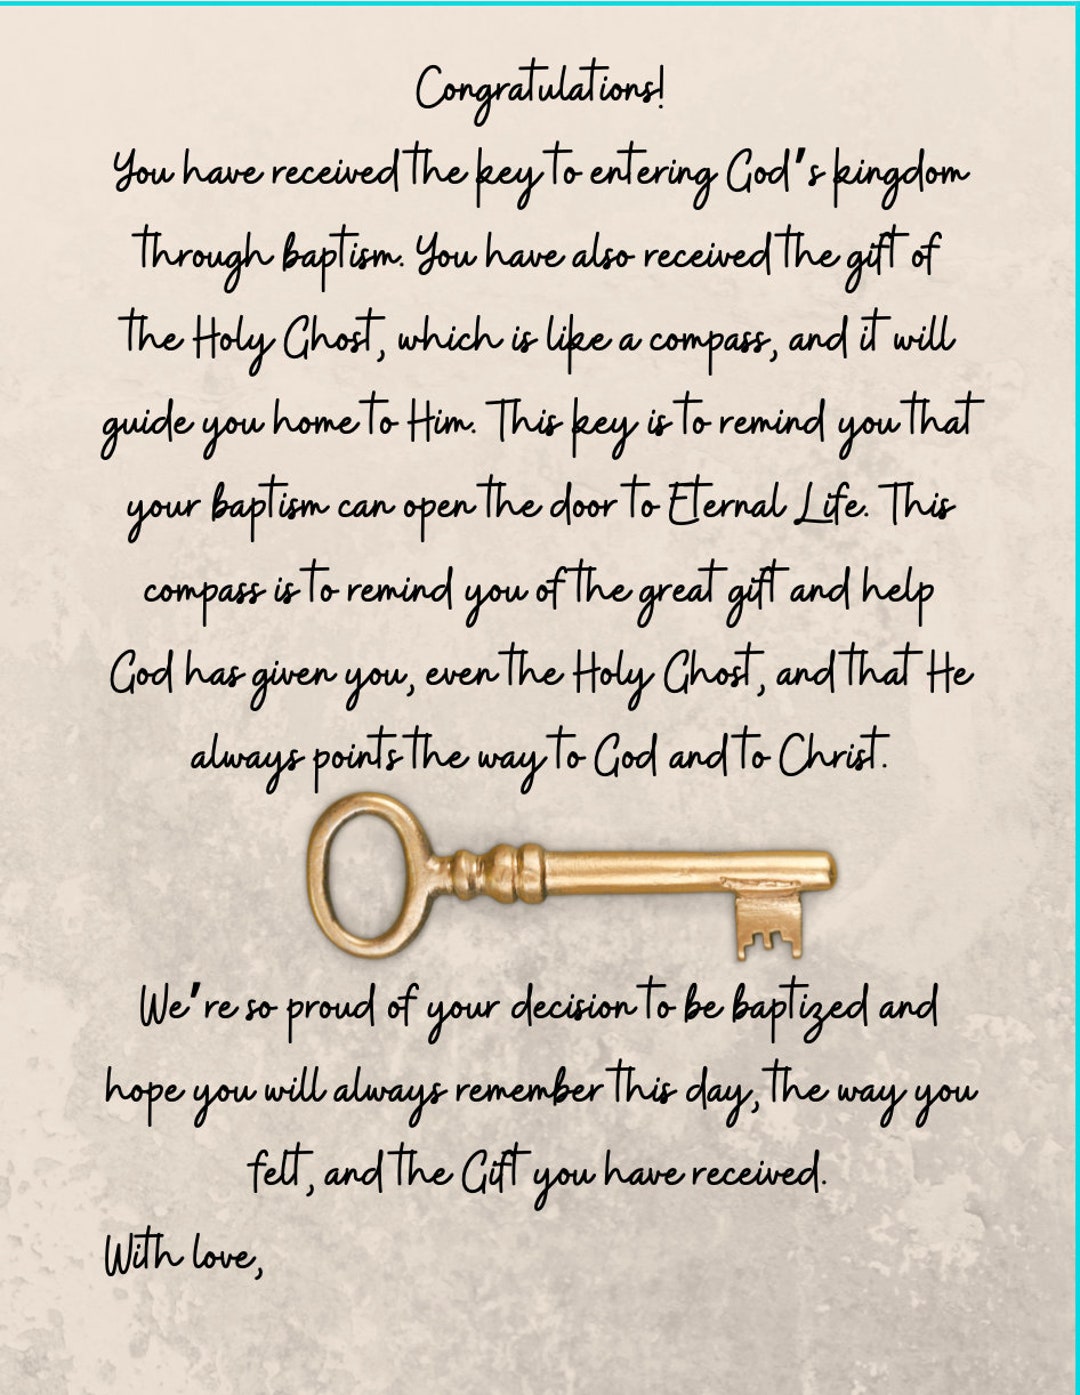 Congratulations!
You have received the key to entering God's kingdom
through baptism. You have also received the gift of
the Holy Ghost, which is like a compass, and it will
guide you home to Him. This key is to remind you that
your baptism can open the door to Eternal Life. This
compass is to remind you of the great gift and help
God has given you, even the Holy Ghost, and that He
always points the way to God and to Christ.
We're so proud of your decision to be baptized and
hope you will always remember this day, the way you
felt, and the Gift you have received.
With love,